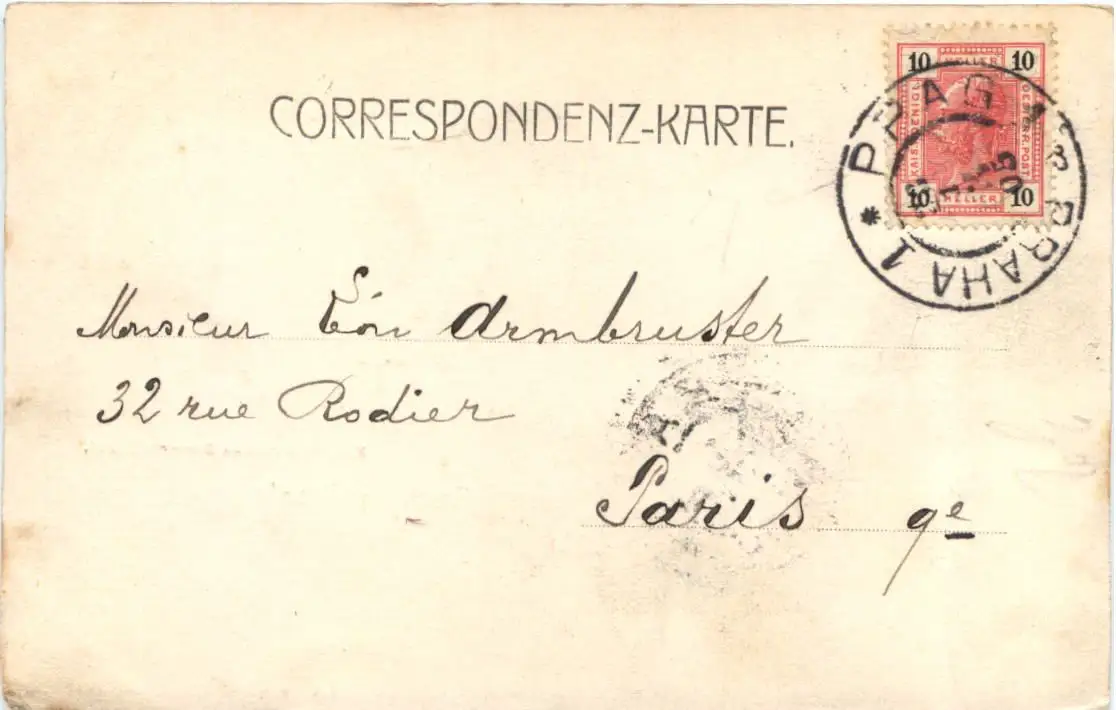 CORRESPONDENZ-KARTE.
10 HELLER 10
KAIS. KÖNIGL. OESTERR. POST
10 HELLER 10
PRAG 1 PRAHA 1 *
05
Monsieur Armbruster
32 rue Rodier
Paris 9e